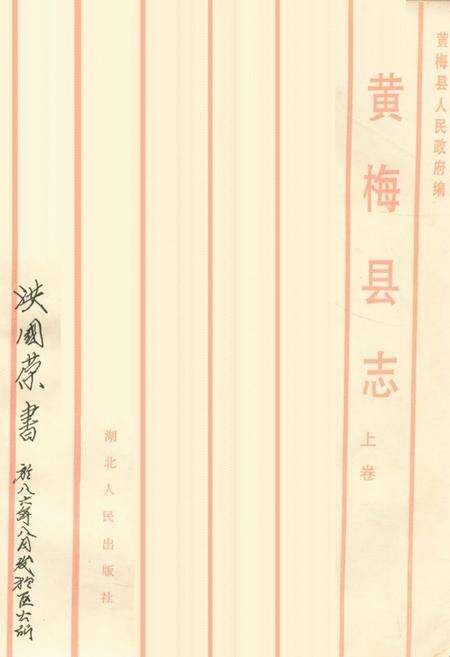 黄梅县人民政府编
黄梅县志
上卷
湖北人民出版社
洪國荣書
於八六年八月